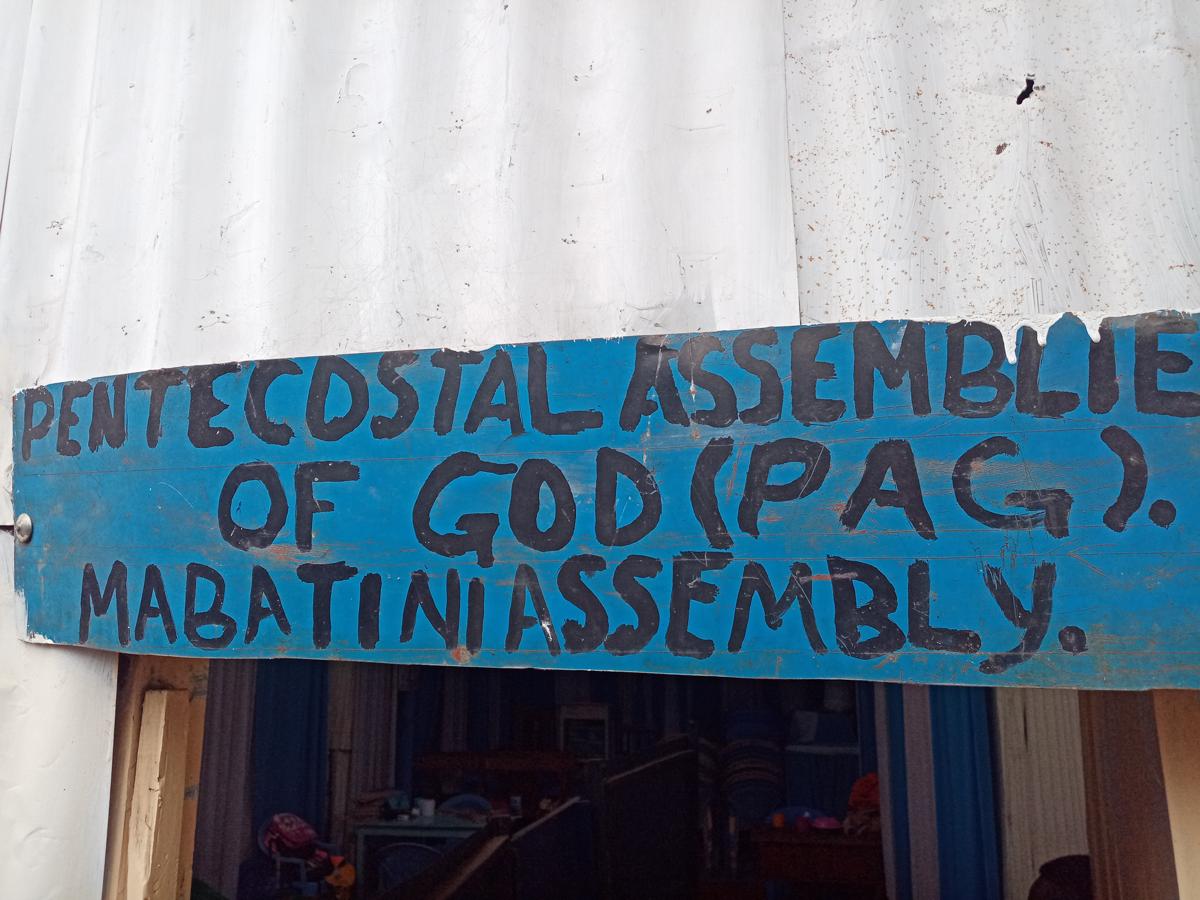 PENTECOSTAL ASSEMBLIE
OF GOD (PAG).
MABATINI ASSEMBLY.